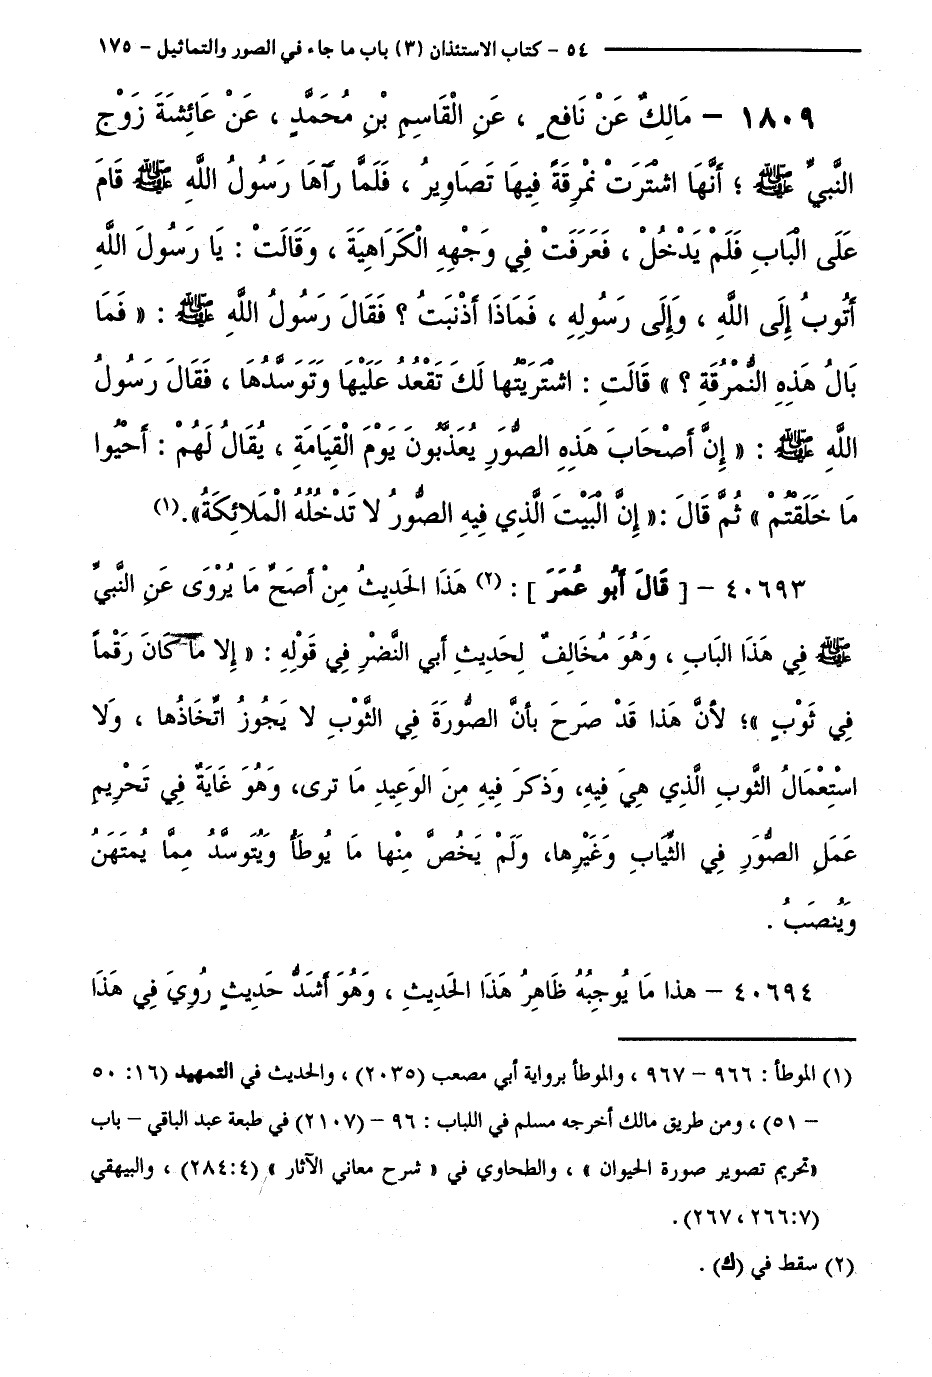 ٥٤ - كتاب الاستئذان (٣) باب ما جاء في الصور والتماثيل - ١٧٥
١٨٠٩ - مَالِكٌ عَنْ نَافِعٍ ، عَنِ الْقَاسِمِ بْنِ مُحَمَّدٍ ، عَنْ عَائِشَةَ زَوْجِ
النَّبِيِّ ﷺ ؛ أَنَّهَا اشْتَرَتْ نُمْرِقَةً فِيهَا تَصَاوِيرُ ، فَلَمَّا رَآهَا رَسُولُ اللَّهِ ﷺ قَامَ
عَلَى الْبَابِ فَلَمْ يَدْخُلْ ، فَعَرَفَتْ فِي وَجْهِهِ الْكَرَاهِيَةَ ، وَقَالَتْ : يَا رَسُولَ اللَّهِ
أَتُوبُ إِلَى اللَّهِ ، وَإِلَى رَسُولِهِ ، فَمَاذَا أَذْنَبَتُ ؟ فَقَالَ رَسُولُ اللَّهِ ﷺ : « فَمَا
بَالُ هَذِهِ النُّمْرُقَةِ ؟ » قَالَتِ : اشْتَرَيْتُها لَكَ تَقْعُدُ عَلَيْهَا وَتَوَسَّدُهَا ، فَقَالَ رَسُولُ
اللَّهِ ﷺ : « إِنَّ أَصْحَابَ هَذِهِ الصُّوَرِ يُعَذَّبُونَ يَوْمَ الْقِيَامَةِ ، يُقَالُ لَهُمْ : أَحْيُوا
مَا خَلَقْتُمْ » ثُمَّ قَالَ :« إِنَّ الْبَيْتَ الَّذِي فِيهِ الصُّوَرُ لا تَدْخُلُهُ الْمَلائِكَةُ».(١)
٤٠٦٩٣ - [ قَالَ أَبُو عُمَرَ ] : (٢) هَذَا الحَدِيثُ مِنْ أَصَحِّ مَا يُرْوَى عَنِ النَّبِيِّ
ﷺ فِي هَذَا البَابِ ، وَهُوَ مُخَالِفٌ لِحَدِيثِ أبي النَّضْرِ فِي قَوْلِهِ : « إِلا مَا كَانَ رَقْماً
فِي ثَوْبٍ »؛ لأنَّ هَذا قَدْ صَرحَ بأنَّ الصُّورَةَ فِي الثَّوْبِ لا يَجُوزُ اتِّخَاذُها ، وَلا
اسْتِعْمَالُ الثَّوبِ الَّذِي هِيَ فِيهِ، وَذكرَ فِيهِ مِنَ الوَعِيدِ مَا ترى، وَهُوَ غَايَةٌ فِي تَحْرِيمِ
عَمَلِ الصُّوَرِ فِي الثِّيَابِ وَغَيْرِها، وَلَمْ يَخُصَّ مِنْها مَا يُوطَأُ وَيُتَوسَّدُ مِمَّا يُمتَهَنُ
وَيُنصَبُ .
٤٠٦٩٤ - هذا مَا يُوجِبُهُ ظَاهِرُ هَذَا الحَدِيثِ ، وَهُوَ أَشَدُّ حَدِيثٍ رُوِيَ فِي هَذَا
(١) الموطأ : ٩٦٦ - ٩٦٧ ، والموطأ برواية أبي مصعب (٢٠٣٥) ، والحديث في التمهيد (١٦: ٥٠
- ٥١) ، ومن طريق مالك أخرجه مسلم في اللباب : ٩٦ - (٢١٠٧) في طبعة عبد الباقي - باب
«تحريم تصوير صورة الحيوان » ، والطحاوي في « شرح معاني الآثار » (٢٨٤:٤) ، والبيهقي
(٢٦٦:٧ ، ٢٦٧).
(٢) سقط في (ك) .